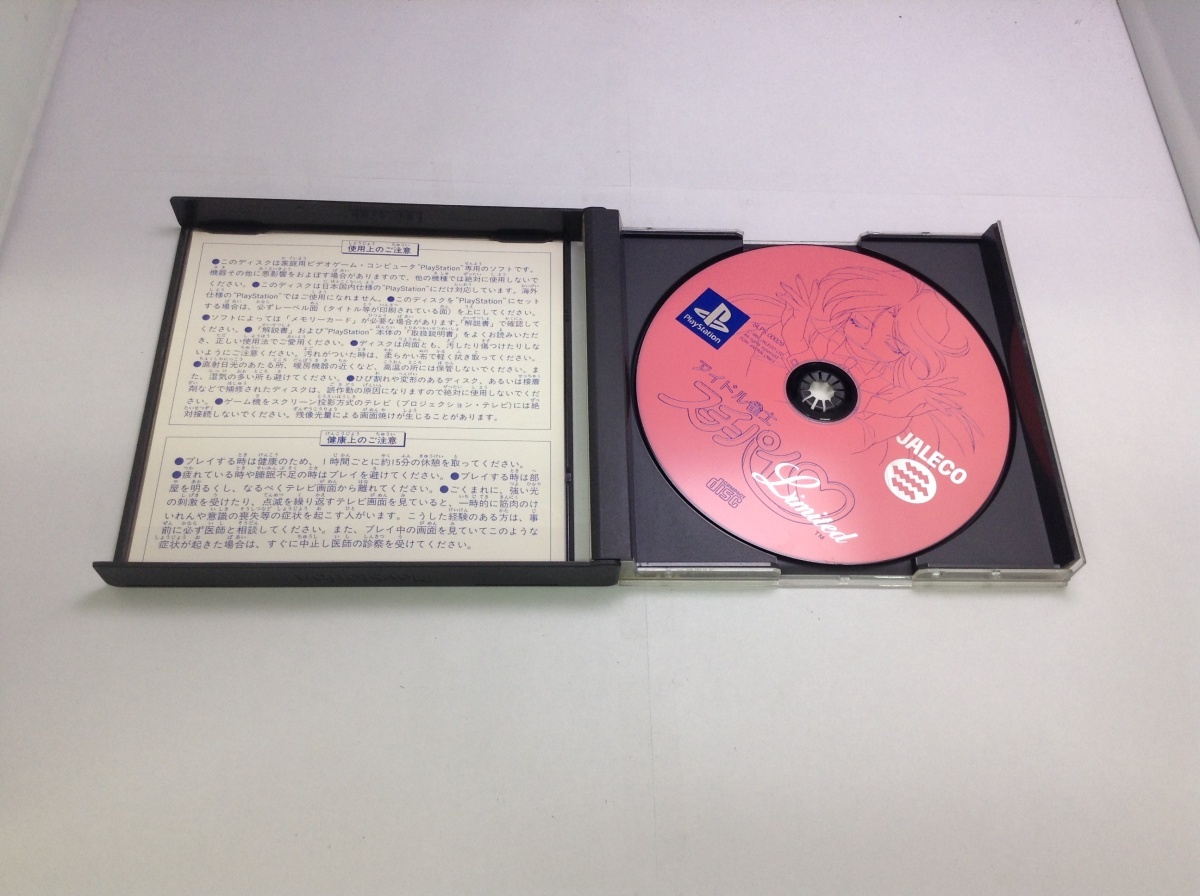 使用上のご注意
●このディスクは家庭用ビデオゲーム・コンピュータ"PlayStation"専用のソフトです。
機器その他に悪影響をおよぼす場合がありますので、他の機種では絶対に使用しないで
ください。●このディスクは日本国内仕様の"PlayStation"にだけ対応しています。海外
仕様の"PlayStation"ではご使用になれません。●このディスクを"PlayStation"にセット
する場合は、必ずレーベル面（タイトル等が印刷されている面）を上にしてください。
●ソフトによっては「メモリーカード」が必要な場合があります。「解説書」で確認して
ください。●「解説書」および"PlayStation"本体の「取扱説明書」をよくお読みいただ
き、正しい使用法でご愛用ください。●ディスクは両面とも、汚したり傷つけたりしな
いようにご注意ください。汚れがついた時は、柔らかい布で軽く拭き取ってください。
●直射日光のあたる所、暖房機器の近くなど、高温の所には保管しないでください。ま
た、湿気の多い所も避けてください。●ひび割れや変形のあるディスク、あるいは接着
剤などで補修されたディスクは、誤作動の原因になりますので絶対に使用しないでくだ
さい。●ゲーム機をスクリーン投影方式のテレビ（プロジェクション・テレビ）には絶
対接続しないでください。残像光量による画面焼けが生じることがあります。
健康上のご注意
●プレイする時は健康のため、1時間ごとに約15分の休憩を取ってください。
●疲れている時や睡眠不足の時はプレイを避けてください。●プレイする時は部
屋を明るくし、なるべくテレビ画面から離れてください。●ごくまれに、強い光
の刺激を受けたり、点滅を繰り返すテレビ画面を見ていると、一時的に筋肉のけ
いれんや意識の喪失等の症状を起こす人がいます。こうした経験のある方は、事
前に必ず医師と相談してください。また、プレイ中の画面を見ていてこのような
症状が起きた場合は、すぐに中止し医師の診察を受けてください。
PlayStation
SLPS-00009
アイドル雀士
スーチーパイ
Limited
TM
JALECO
COMPACT
disc